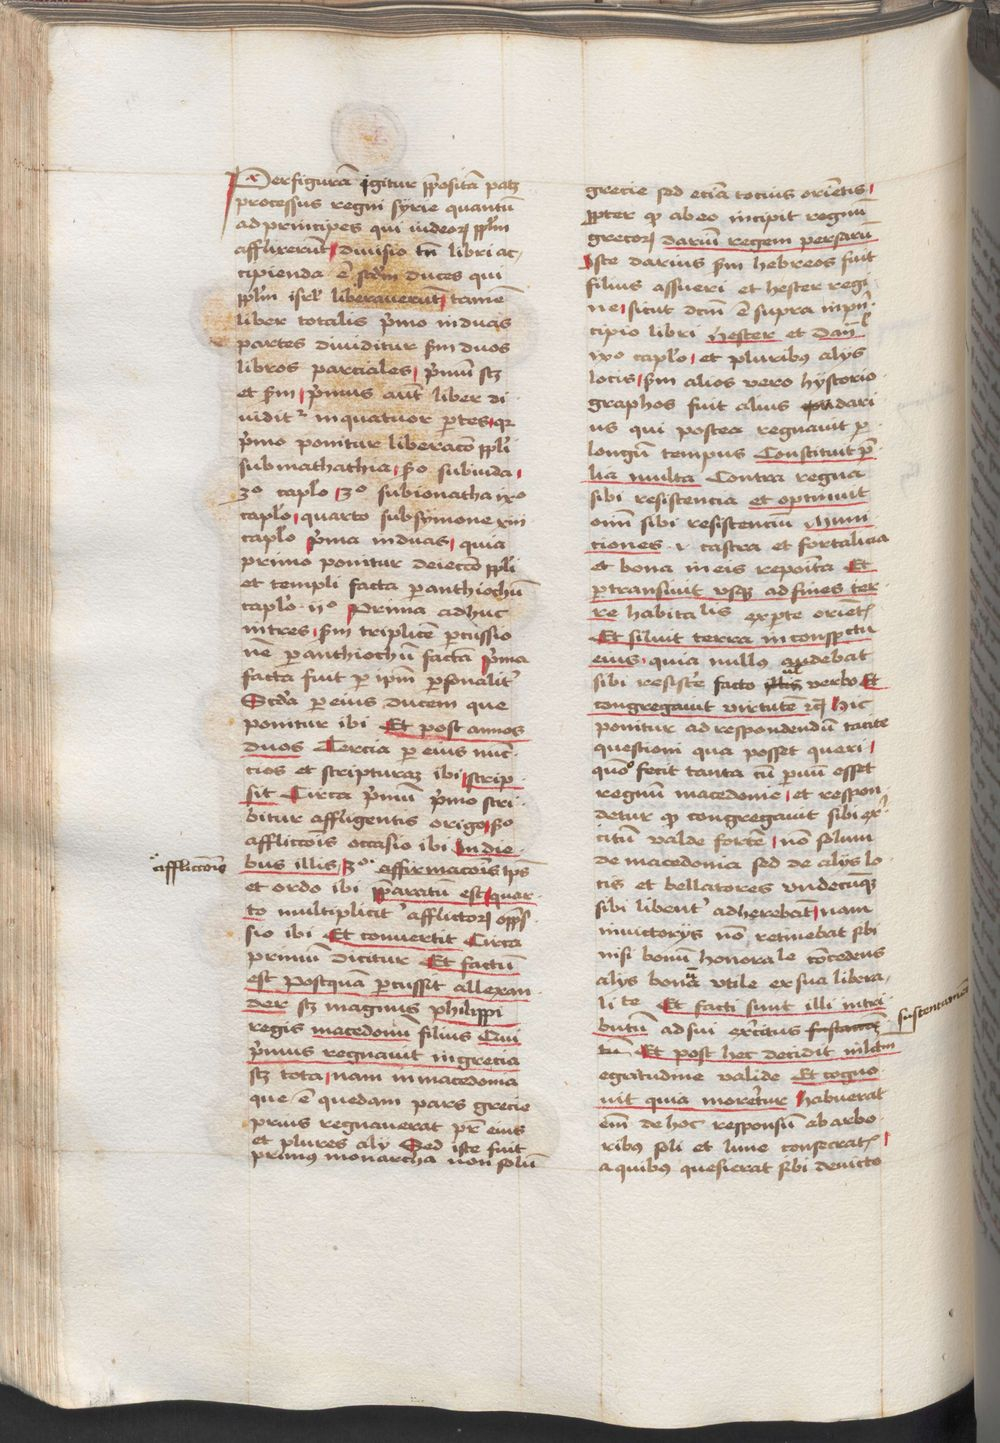 Per figurā igitur p̄positā patȝ
processus regni syrie quantū
ad principes qui iudeoꝝ pplm̄
afflixerūt diuisio tn̄ libri ac⸗
cipienda ē scd̄m duces qui
pplm̄ isrl̄ liberauerūt tamē
liber totalis p̄mo in duas
partes diuiditur scd̄m duos
libros parciales p̄mū scȝ
et scd̄m p̄mus aūt liber di
uidit᷑ in quatuor ꝑtes qꝛ
p̄mo ponitur liberacō pplī
sub mathathia sc̄do sub iuda
3º caplo 3º sub ionatha ixº
caplo quarto sub symone xiii
caplo p̄ma in duas quia
primo ponitur deieccō pplī
et templi facta ꝑ anthiochū
caplo iiº Prima adhuc
in tres scd̄m triplicē ꝑcussio
nē ꝑ anthiochū factā p̄ma
facta fuit ꝑ ip̄m ꝑsonalit᷑
Scd̄a ꝑ eius ducem que
ponitur ibi Et post annos
duos Tercia ꝑ eius nūc⸗
cios et scripturas ibi scrip⸗
sit Circa p̄mū p̄mo scri⸗
bitur affligentis origo sc̄do
afflictōis occasio ibi In die⸗
afflictōis
bus illis 3º affirmacōis tp̄s
et ordo ibi p̄paratū est quar⸗
to multiplicit᷑ afflictoꝝ opp̄s⸗
sio ibi Et conuertit Circa
primū dicitur Et factū
est postquā ꝑcussit allexan⸗
der scȝ magnus philippi
regis macedonū filius Qui
p̄mus regnauit in grecia
scȝ tota nam in macedonia
que ē quedam pars grecie
prius regnauerat pr̄ eius
et plures alij Sed iste fuit
primus monarcha non solū
grecie sed eciā tocius oriētis
ꝓpter qꝫ ab eo incipit regnū
grecoꝝ darium regem persarū
Iste darius scd̄m hebreos fuit
filius assueri et hester regi
ne sicut dcm̄ ē supra in pn̄⸗
cipio libri hester et Dan̄l
ixº caplo et pluribꝫ alijs
locis scd̄m alios vero hystorio⸗
graphos fuit alius dari
us qui postea regnauit ꝑ
longū tempus Constituit p̄⸗
lia multa Contra regna
sibi resistencia et optinuit
om̄ sibi resistenciū Muni
ciones .i. castra et fortalicia
et bona in eis reposita Et
ꝑtransiuit vsqꝫ ad fines ter⸗
re habitalis ex ꝑte oriēt
Et siluit terra in conspectu
eius quia nullꝫ audebat
sibi resistere facto ul̄ verbo Et
congregauit virtutē rc̄ Hic
ponitur ad respondendū tacite
questioni qua posset queri
quōº fecit tanta cū ꝑuū esset
regnum macedonie et respon⸗
detur qꝫ congregauit sibi ex̄⸗
citum valde fortē nō solum
de macedonia sed de alijs lo⸗
cis et bellatores vndecūqꝫ
sibi libent᷑ adherebāt nam
in victorijs nō retinebat sibi
nisi bonū honorale cōcedens
alijs bonū vtile ex sua libera⸗
li te Et facti sunt illi in tri⸗
butū ad sui ex̄citus
sustentamen
Et post hec decidit in lectm̄
egritudine valide Et cogno⸗
uit quia moretur habuerat
em̄ de hoc responsū ab arbo⸗
ribꝫ soli et lune consecrat
a quibus quesierat sibi deuicto